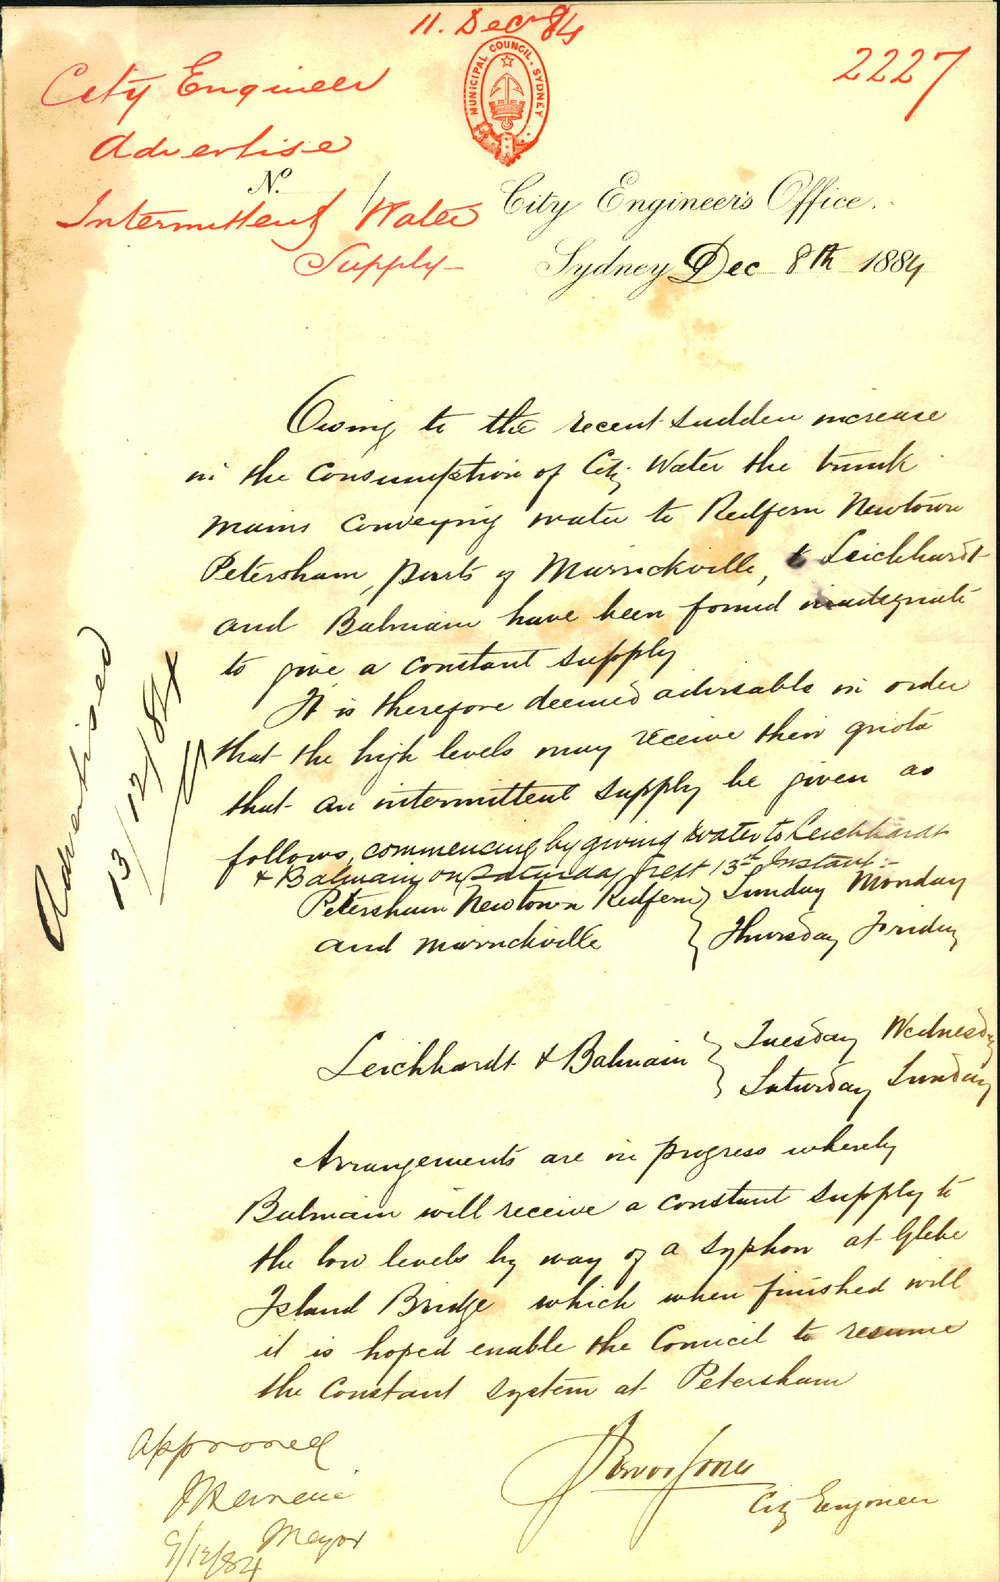 11. Decr 84
2227
MUNICIPAL COUNCIL. SYDNEY
City Engineer
Advertise
Intermittent Water
Supply
No. /
City Engineer's Office.
Sydney Dec 8th 1884
Owing to the recent sudden increase
in the consumption of City Water the trunk
mains conveying water to Redfern Newtown
Petersham, parts of Marrickville, & Leichhardt
and Balmain have been found inadequate
to give a constant supply
It is therefore deemed advisable in order
that the high levels may receive their quota
that an intermittent supply be given as
follows, commencing by giving water to Leichhardt
& Balmain on Saturday next 13th Instant:-
Petersham Newtown Redfern } Sunday Monday
and Marrickville } Thursday Friday
Leichhardt & Balmain } Tuesday Wednesday
Saturday Sunday
Arrangements are in progress whereby
Balmain will receive a constant supply to
the low levels by way of a syphon at Glebe
Island Bridge which when finished will
it is hoped enable the Council to resume
the constant system at Petersham
Trevor Jones
City Engineer
Approved
Mayor
9/12/84
Advertised
13/12/84